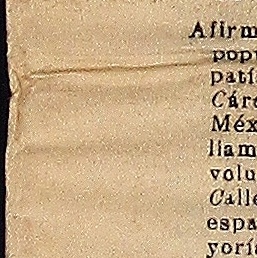 Afirm
popu
patí
Cáre
Méx
llam
volu
Calle
espa
yorí